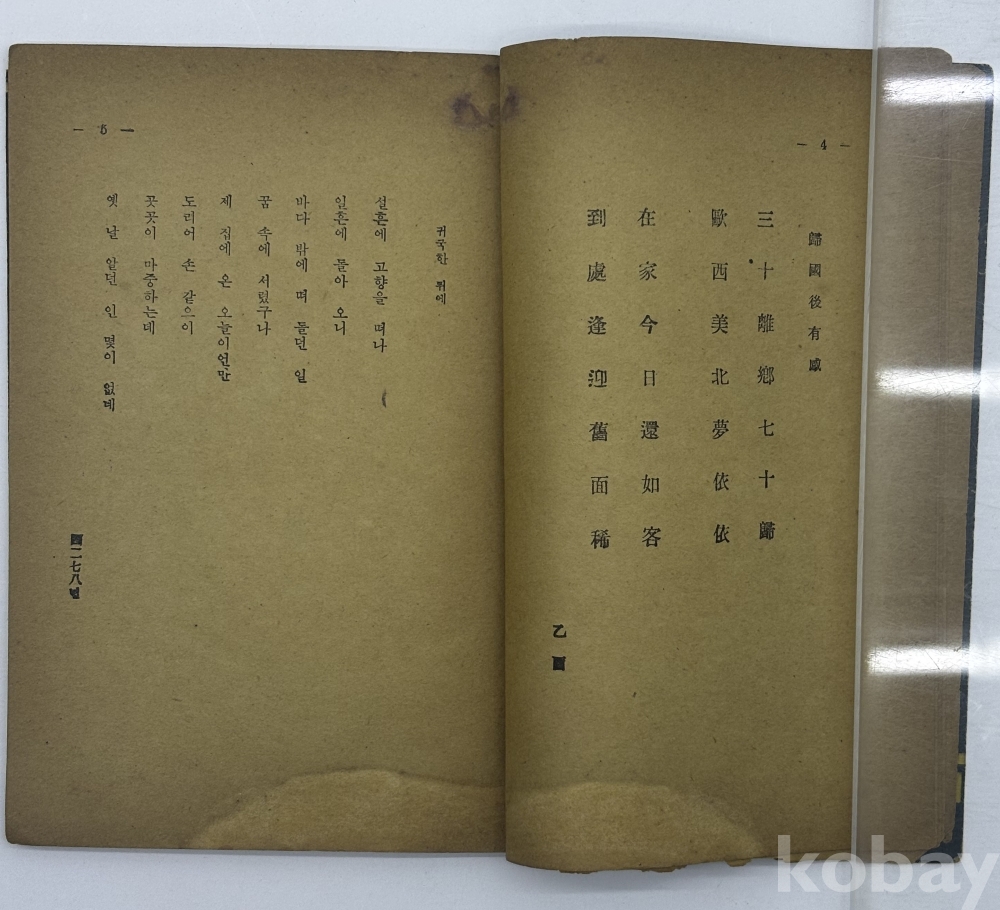 — 4 —
歸國後有感
三十離鄕七十歸
歐西美北夢依依
在家今日還如客
到處逢迎舊面稀
乙酉
— 5 —
귀국한 뒤에
설흔에 고향을 떠나
일흔에 돌아 오니
바다 밖에 떠 돌던 일
꿈 속에 서렸구나
제 집에 온 오늘이언만
도리어 손 같으이
곳곳이 마중하는데
옛 날 알던 인 몇이 없네
四二七八년
kobay